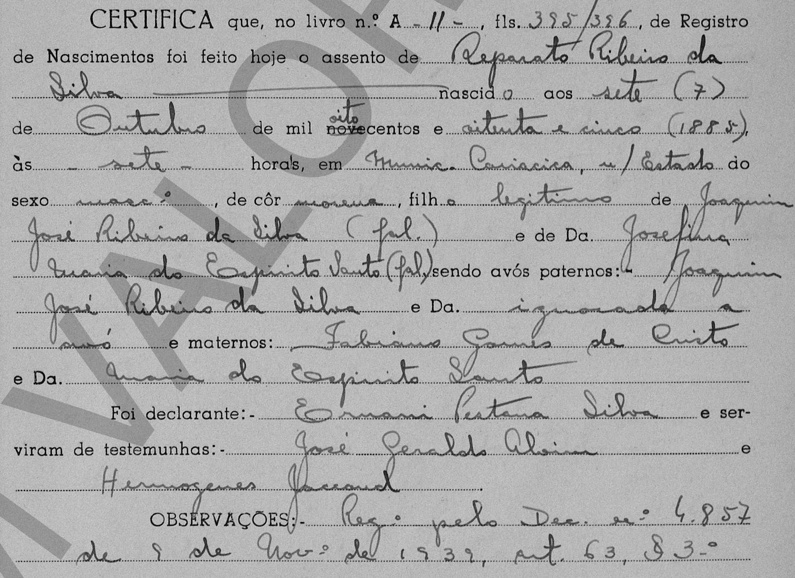 CERTIFICA que, no livro n.º A - 11 - , fls. 395/396, de Registro
de Nascimentos foi feito hoje o assento de Reparato Ribeiro da
Silva nascido aos sete (7)
de Outubro de mil oito novecentos e oitenta e cinco (1885),
às - sete - horas, em Munic. Cariacica, n/Estado do
sexo masc.º , de côr morena , filho legitimo de Joaquim
José Ribeiro da Silva (fal.) e de Da. Josefina
Maria do Espirito Santo (fal.) sendo avós paternos:- Joaquim
José Ribeiro da Silva e Da. ignorada a
avó e maternos: Fabiano Gomes de Cristo
e Da. Maria do Espirito Santo
Foi declarante:- Ernani Pestana Silva e ser-
viram de testemunhas:- José Geraldo e
Hermogenes
OBSERVAÇÕES:- Reg.º pelo Dec. n.º 4.857
de 9 de Nov.º de 1939, art. 63, § 3.º
VALOR